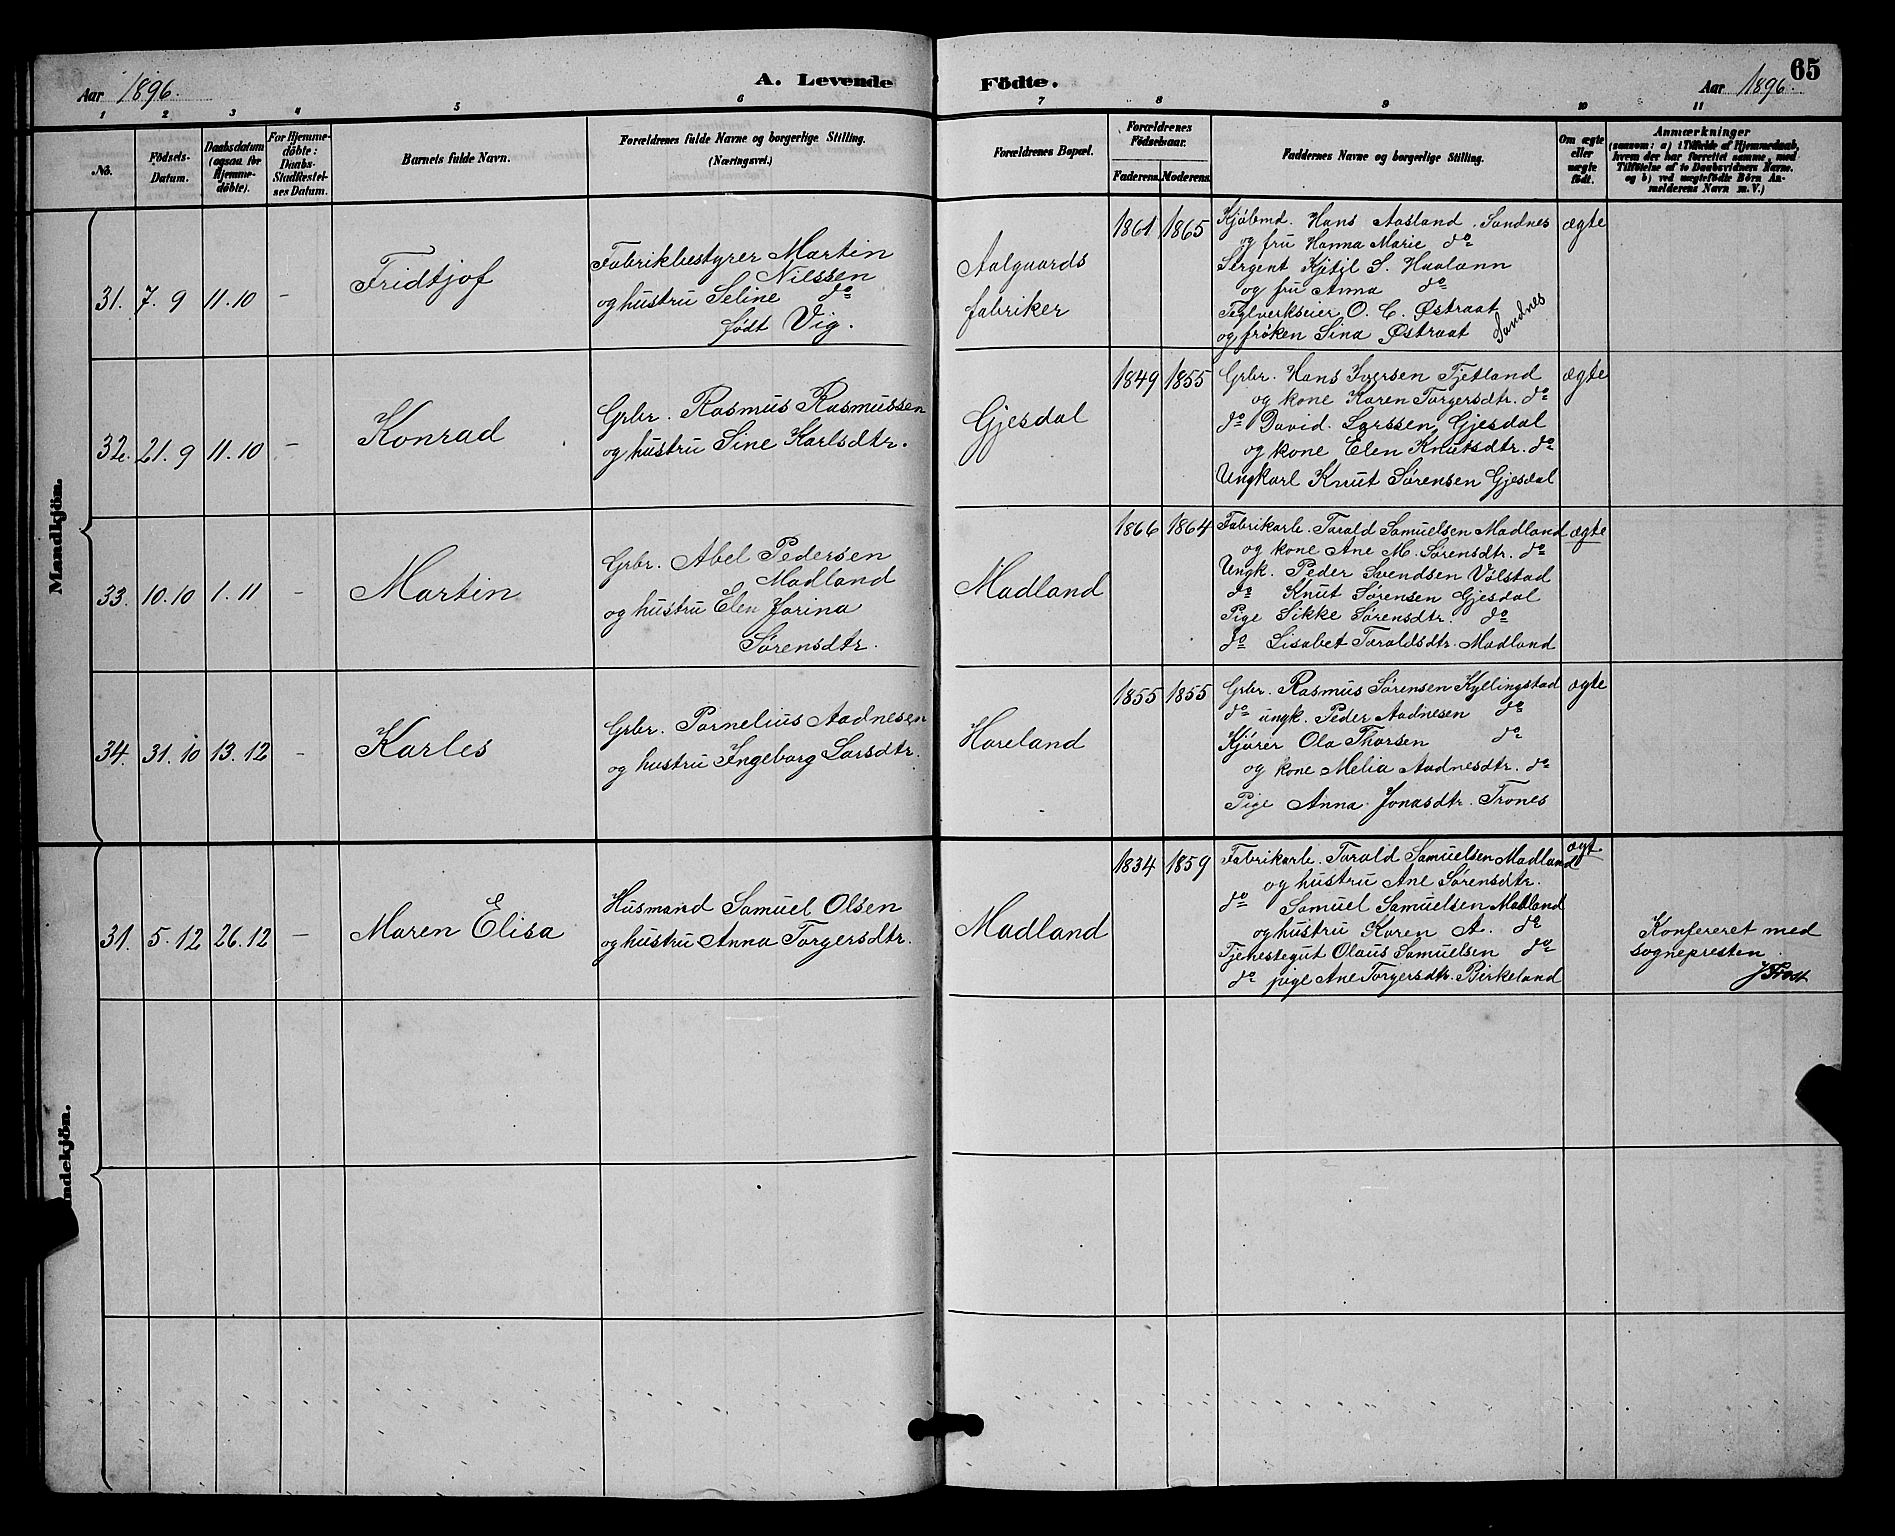 Aar 1896.
A. Levende Födte.
Aar 1896.
65
1 2 3 4 5 6 7 8 9 10 11
No.
Födsels-
Datum.
Daabsdatum
(ogsaa for
Hjemme-
döbte).
For Hjemme-
döbte:
Daabs-
Stadfæstel-
ses Datum.
Barnets fulde Navn.
Forældrenes fulde Navne og borgerlige Stilling.
(Næringsvei.)
Forældrenes Bopæl.
Forældrenes
Födselsaar.
Faderens. Moderens.
Faddernes Navne og borgerlige Stilling.
Om ægte
eller
uægte
födt.
Anmærkninger
(saasom: a) i Tilfælde af Hjemmedaab,
hvem der har forrettet samme, med
Tilföielse af to Daabsvidners Navne.
og b) ved uægtefödte Börn An-
melderens Navn m. V.)
Mandkjön.
31. 7. 9 11. 10 - Fridtjof
Fabrikbestyrer Martin
Nilssen
og hustru Seline do
født Vig.
Aalgaards
fabriker
1861 1865
Kjøbmd. Hans Aasland. Sandnes
og fru Hanna Marie do
Sergent Kjitil S. Haalann
og fru Anna do
Teglverkseier O. C. Østraat
og frøken Sina Østraat Sandnes
ægte
32. 21. 9 11. 10 - Konrad
Grbr. Rasmus Rasmussen
og hustru Sine Karlsdtr.
Gjesdal
1849 1855
Grbr. Hans Iversen Tjetland
og kone Karen Torgersdtr. do
do David Larssen Gjesdal
og kone Elen Knutsdtr. do
Ungkarl Knut Sørensen Gjesdal
ægte
33. 10. 10 1. 11 - Martin
Grbr. Abel Pedersen
Madland
og hustru Elen Jorina
Sørensdtr.
Madland
1866 1864
Fabrikarb. Tarald Samuelsen Madland
og kone Ane M. Sørensdtr. do
Ungk. Peder Svendsen Vølstad
do Knut Sørensen Gjesdal
Pige Sikke Sørensdtr. do
do Lisabet Taraldsdtr. Madland
ægte
34. 31. 10 13. 12 - Karles
Grbr. Pornelius Aadnesen
og hustru Ingeborg Larsdtr.
Hareland
1855 1855
Grbr. Rasmus Sørensen Kyllingstad
do ungk. Peder Aadnesen do
Kjører Ola Thorsen do
og kone Melia Aadnesdtr. do
Pige Anna Jonasdtr. Trones
ægte
ndekjön.
31. 5. 12 26. 12 - Maren Elisa
Husmand Samuel Olsen
og hustru Anna Torgersdtr.
Madland
1834 1859
Fabrikarb. Tarald Samuelsen Madland
og hustru Ane Sørensdtr.
do Samuel Samuelsen Madland
og hustru Karen A. do
Tjenestegut Olaus Samuelsen do
do pige Ane Torgersdtr. Birkeland
ægte
Konfereret med
sognepresten